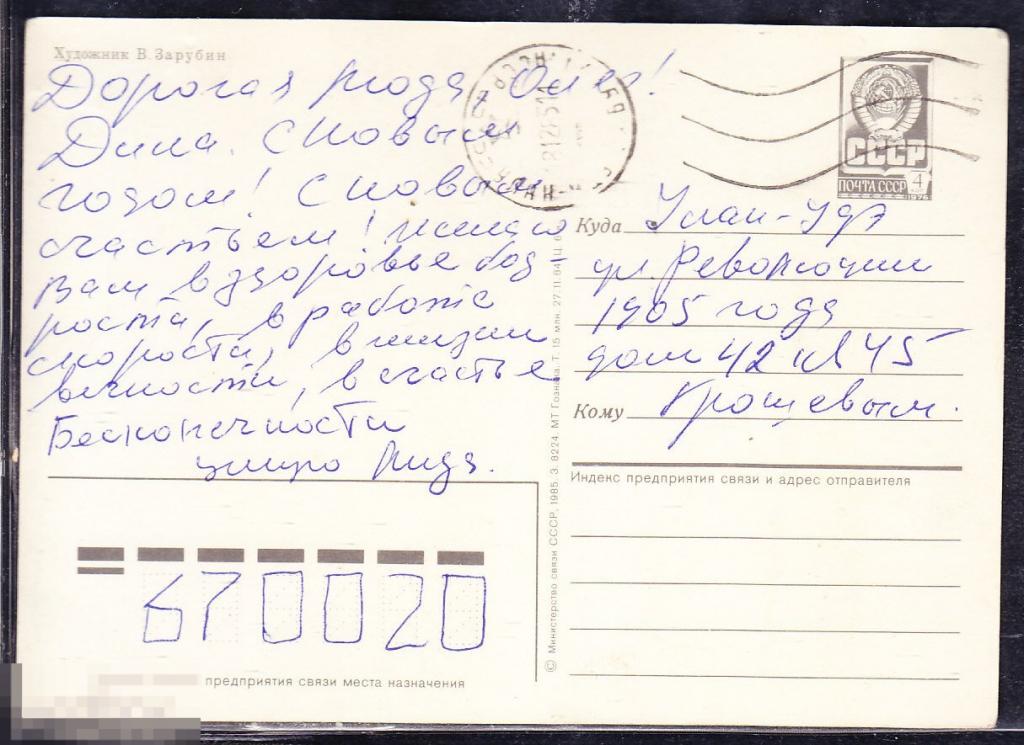 Художник В. Зарубин
Дорогая Люда, Олег!
Дима. С Новым
годом! С новым
счастьем! Желаю
Вам в здоровье бод-
рости, в работе
скорости, в жизни
вечности, в счастье
Бесконечности
Лида.
ПОЧТА СССР
СССР
4
1976
Куда Улан-Удэ
ул. Революции
1905 года
дом 42 кв 45
Кому
Индекс предприятия связи и адрес отправителя
© Министерство связи СССР, 1985. З. 8224. МТ Гознака. Т. 15 млн. 27.11.84. Ц.
670020
предприятия связи места назначения